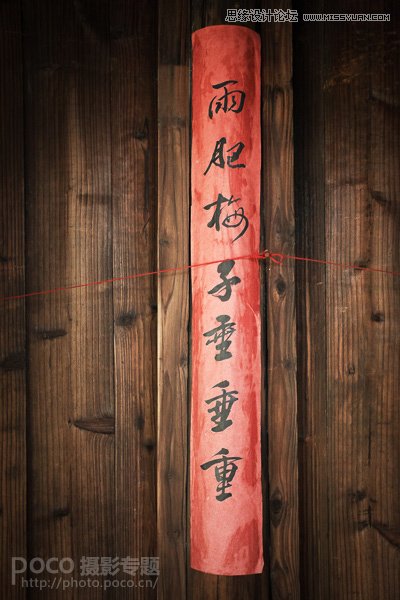 思缘设计论坛 WWW.MISSYUAN.COM
雨肥梅子垂垂重
POCO 摄影专题
http://photo.poco.cn/